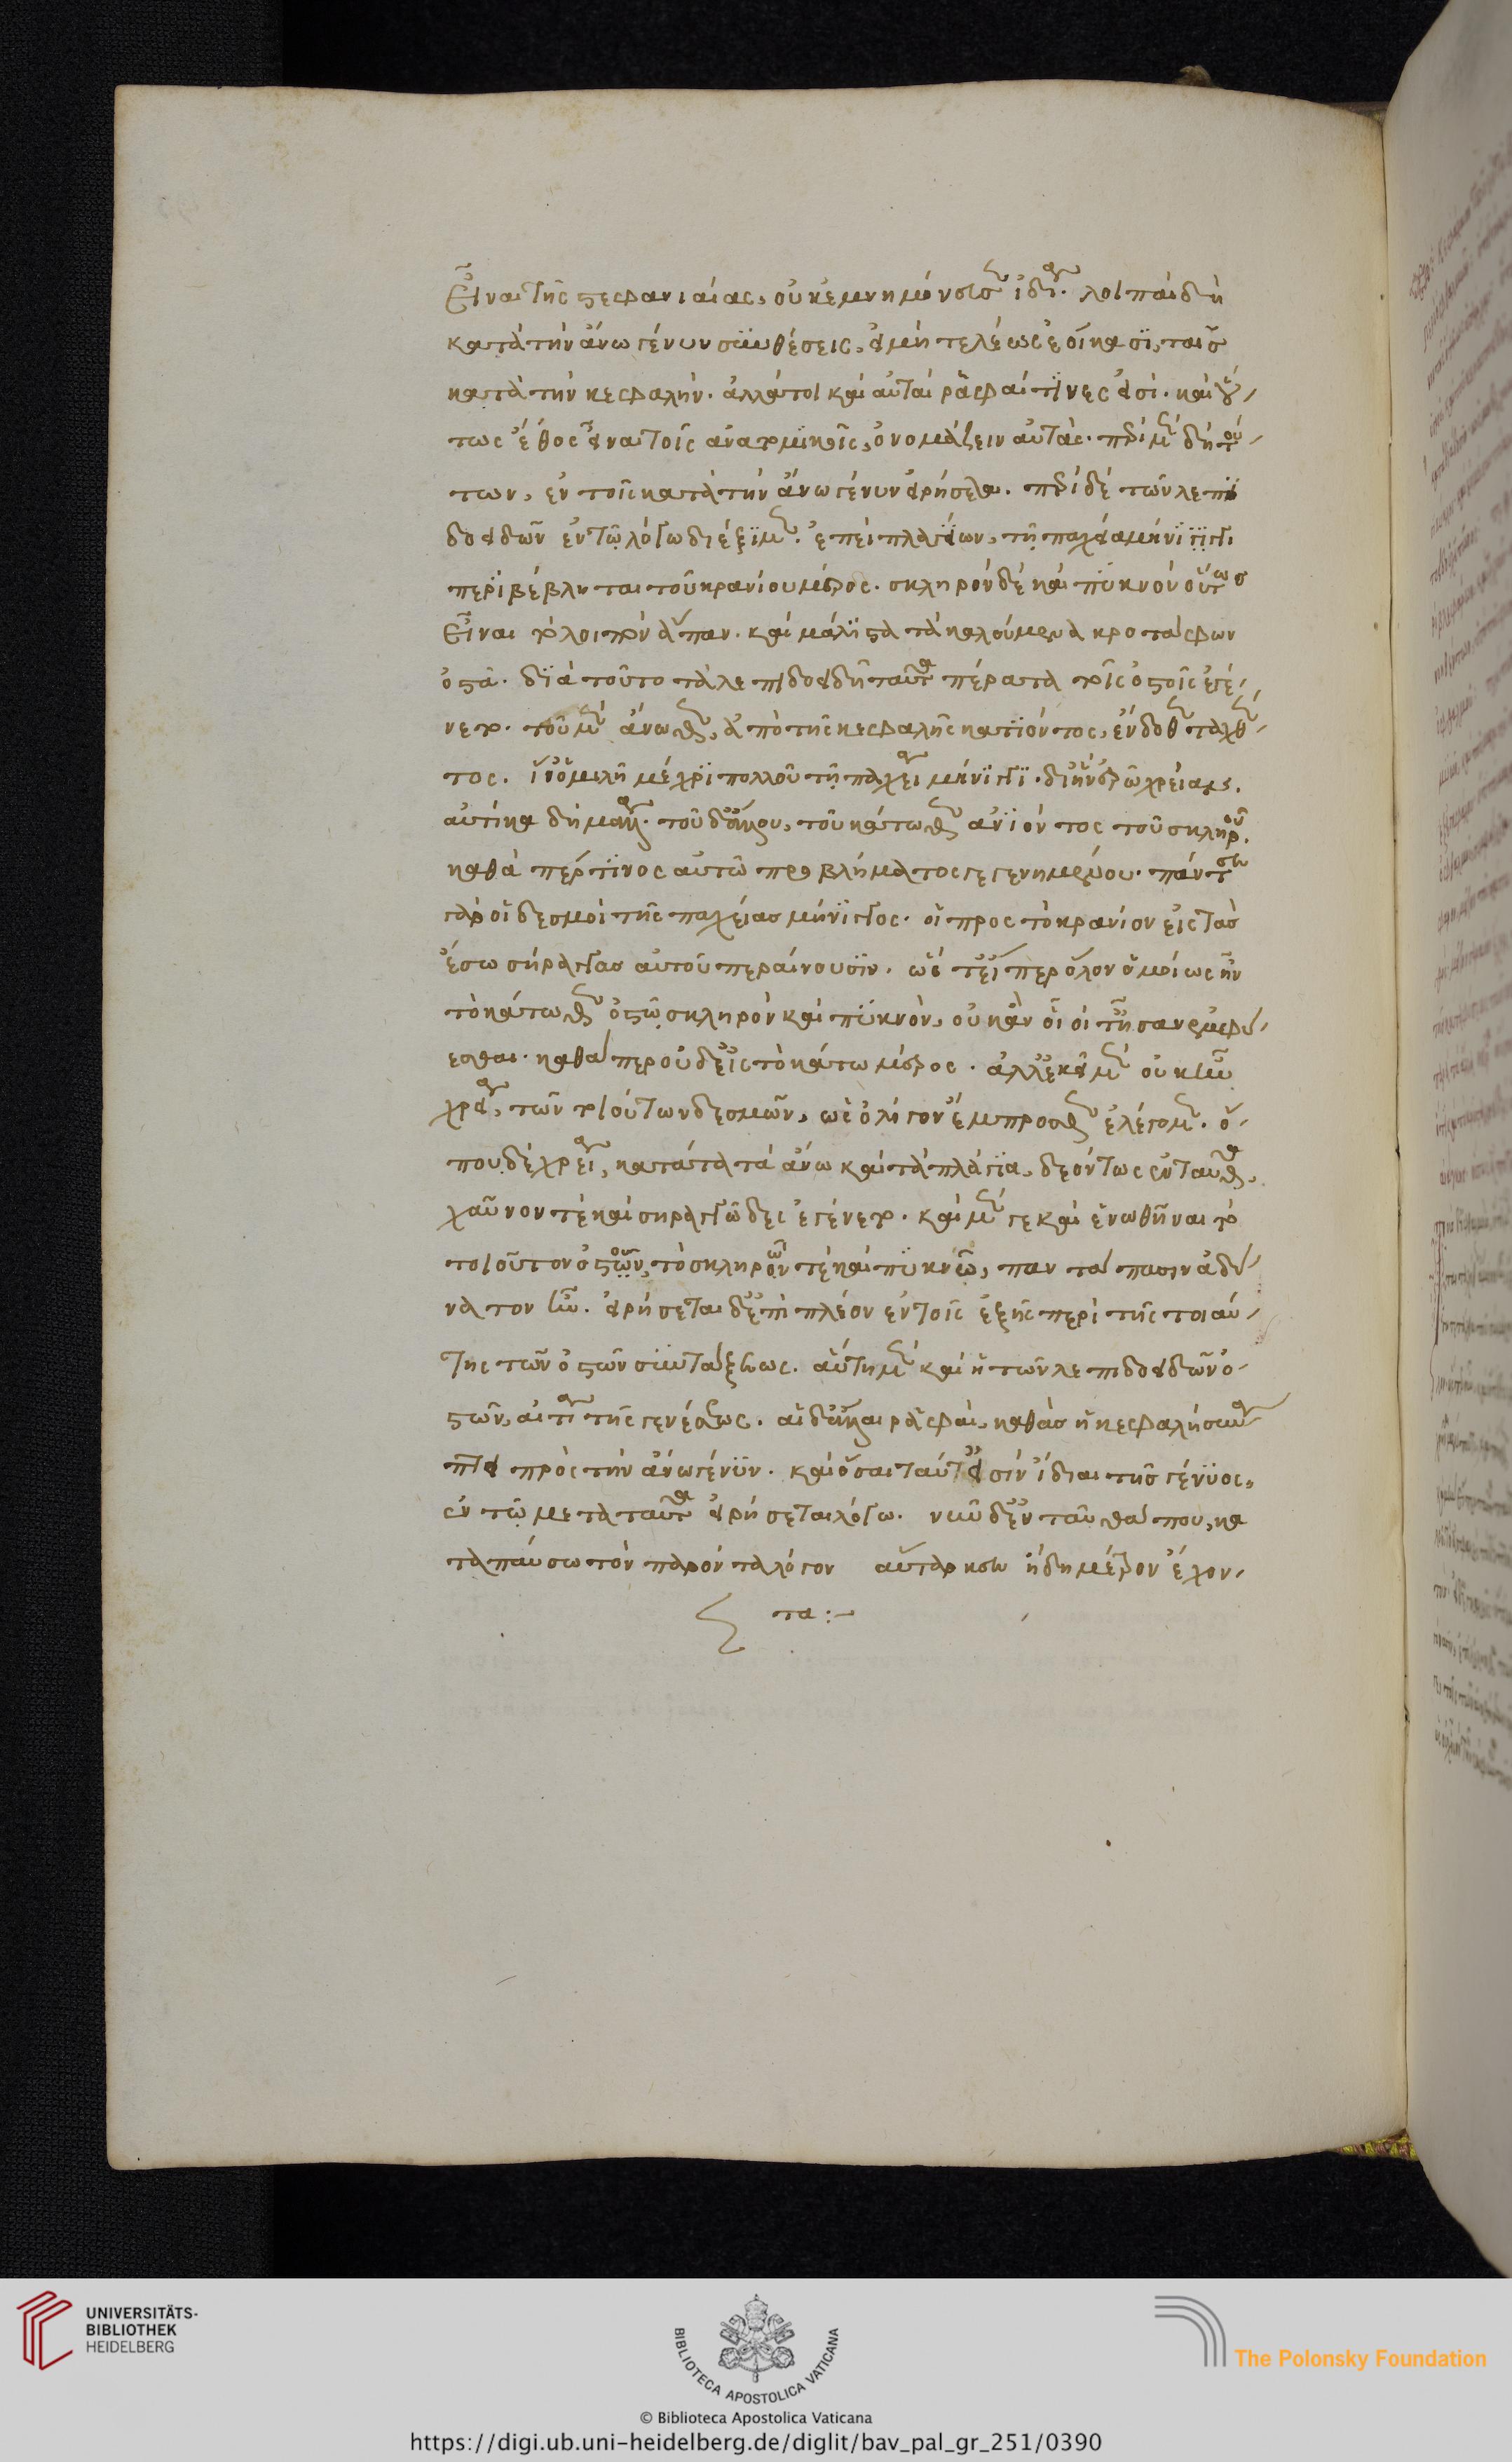 Εἶναι τῆς στεφανιαίας, οὐκ ἐμνημόνευσ ἰδία. λοιπαὶ δὴ
κατὰ τὴν ἄνω γένυν συνθέσεις, εἰ μὴ τελέως ἐοίκασι, ταῖς
κατὰ τὴν κεφαλήν. ἀλλάτοι καὶ αὐταὶ ῥαφαί τινες εἰσί. καὶ οὕ-
τως ἔθος εἶναι τοῖς ἀνατομικοῖς, ὀνομάζειν αὐτάς. περὶ μὲν δὴ τού-
των, ἐν τοῖς κατὰ τὴν ἄνω γένυν εἰρήσεται. περὶ δὲ τῶν λεπι
δοειδῶν ἐν τῷ λόγω διέξιμεν. ἐπεὶ πλαγίων, τῇ παχεία μήνιγγι
περιβέβληται τοῦ κρανίου μέρος. σκληρὸν δὲ καὶ πυκνὸν οὕτως
Εἶναι τὸ λοιπὸν ἅπαν. καὶ μάλιστα τὰ καλούμενα κροτάφων
ὀστᾶ. διὰ τοῦτο τὰ λεπιδοειδῆ ταῦτα πέρατα τοῖς ὀστοῖς ἐγέ-
νετο. τοῦ μὲν ἄνωθεν, ἀπὸ τῆς κεφαλῆς κατιόντος, ἔνδοθεν ταχθέν-
τος. ἵν' ὁμιλῆ μέχρι πολλοῦ τῇ παχεῖα μήνιγγι. δι' ἣν ἐρῶ χρείαν.
αὐτίκα δὴ μάλα. τοῦ δ' ἄλλου, τοῦ κάτωθεν ἀνιόντος τοῦ σκληροῦ.
καθάπέρ τινος αὐτῶ προβλήματος γεγενημένου. πάντως
γὰρ οἱ δεσμοὶ τῆς παχείας μήνιγγος. οἱ πρὸς τὸ κρανίον εἰς τὰς
ἔσω σήραγγας αὐτοῦ περαίνουσιν. ὡς εἴπερ ὅλον ὁμοίως ἦν
τὸ κάτωθεν ὀστῶ σκληρὸν καὶ πυκνόν, οὐκ ἂν οἷοι τ' ἦσαν ἐμφύ-
εσθαι. καθάπερ οὐδ' εἰς τὸ κάτω μέρος. ἀλλ' ἐκεῖ μὲν οὐκ ἦν
χρεία, τῶν τοιούτων δεσμῶν, ὡς ὀλίγον ἔμπροσθεν ἐλέγομεν. ὅ-
που δὲ χρεία, κατά τα τὰ ἄνω καὶ τὰ πλάγια, δεόντως ἐνταῦθα,
χαῦνον τὲ καὶ σηραγγῶδες ἐγένετο. καὶ μέν γε καὶ ἑνωθῆναι τὸ
τοιοῦτον ὀστοῦν, τὸ σκληρῶν τὲ καὶ πυκνῶ, παντάπασιν ἀδύ-
νατον ἦν. εἰρήσεται δ' ἐπὶ πλέον ἐν τοῖς ἑξῆς περὶ τῆς τοιαύ-
της τῶν ὀστῶν συντάξεως. αὕτη μὲν καὶ ἡ τῶν λεπιδοειδῶν ὀ-
στῶν, αἰτία τῆς γενέσεως. αἱ δ' ἄλλαι ῥαφαὶ, καθὰς ἡ κεφαλὴ συνά
πτει πρὸς τὴν ἄνω γένυν. καὶ ὅσαι ταύτ' εἰσὶν ἴδιαι τῆς γένυος,
ἐν τῷ μετὰ ταῦτα εἰρήσεται λόγω. νυνὶ δ' ἐνταῦθά που, κα
ταπαύσω τὸν παρόντα λόγον αὔταρκες ἤδη μέτρον ἔχον-
τα :-
UNIVERSITÄTS-
BIBLIOTHEK
HEIDELBERG
BIBLIOTECA APOSTOLICA VATICANA
The Polonsky Foundation
© Biblioteca Apostolica Vaticana
https://digi.ub.uni-heidelberg.de/diglit/bav_pal_gr_251/0390